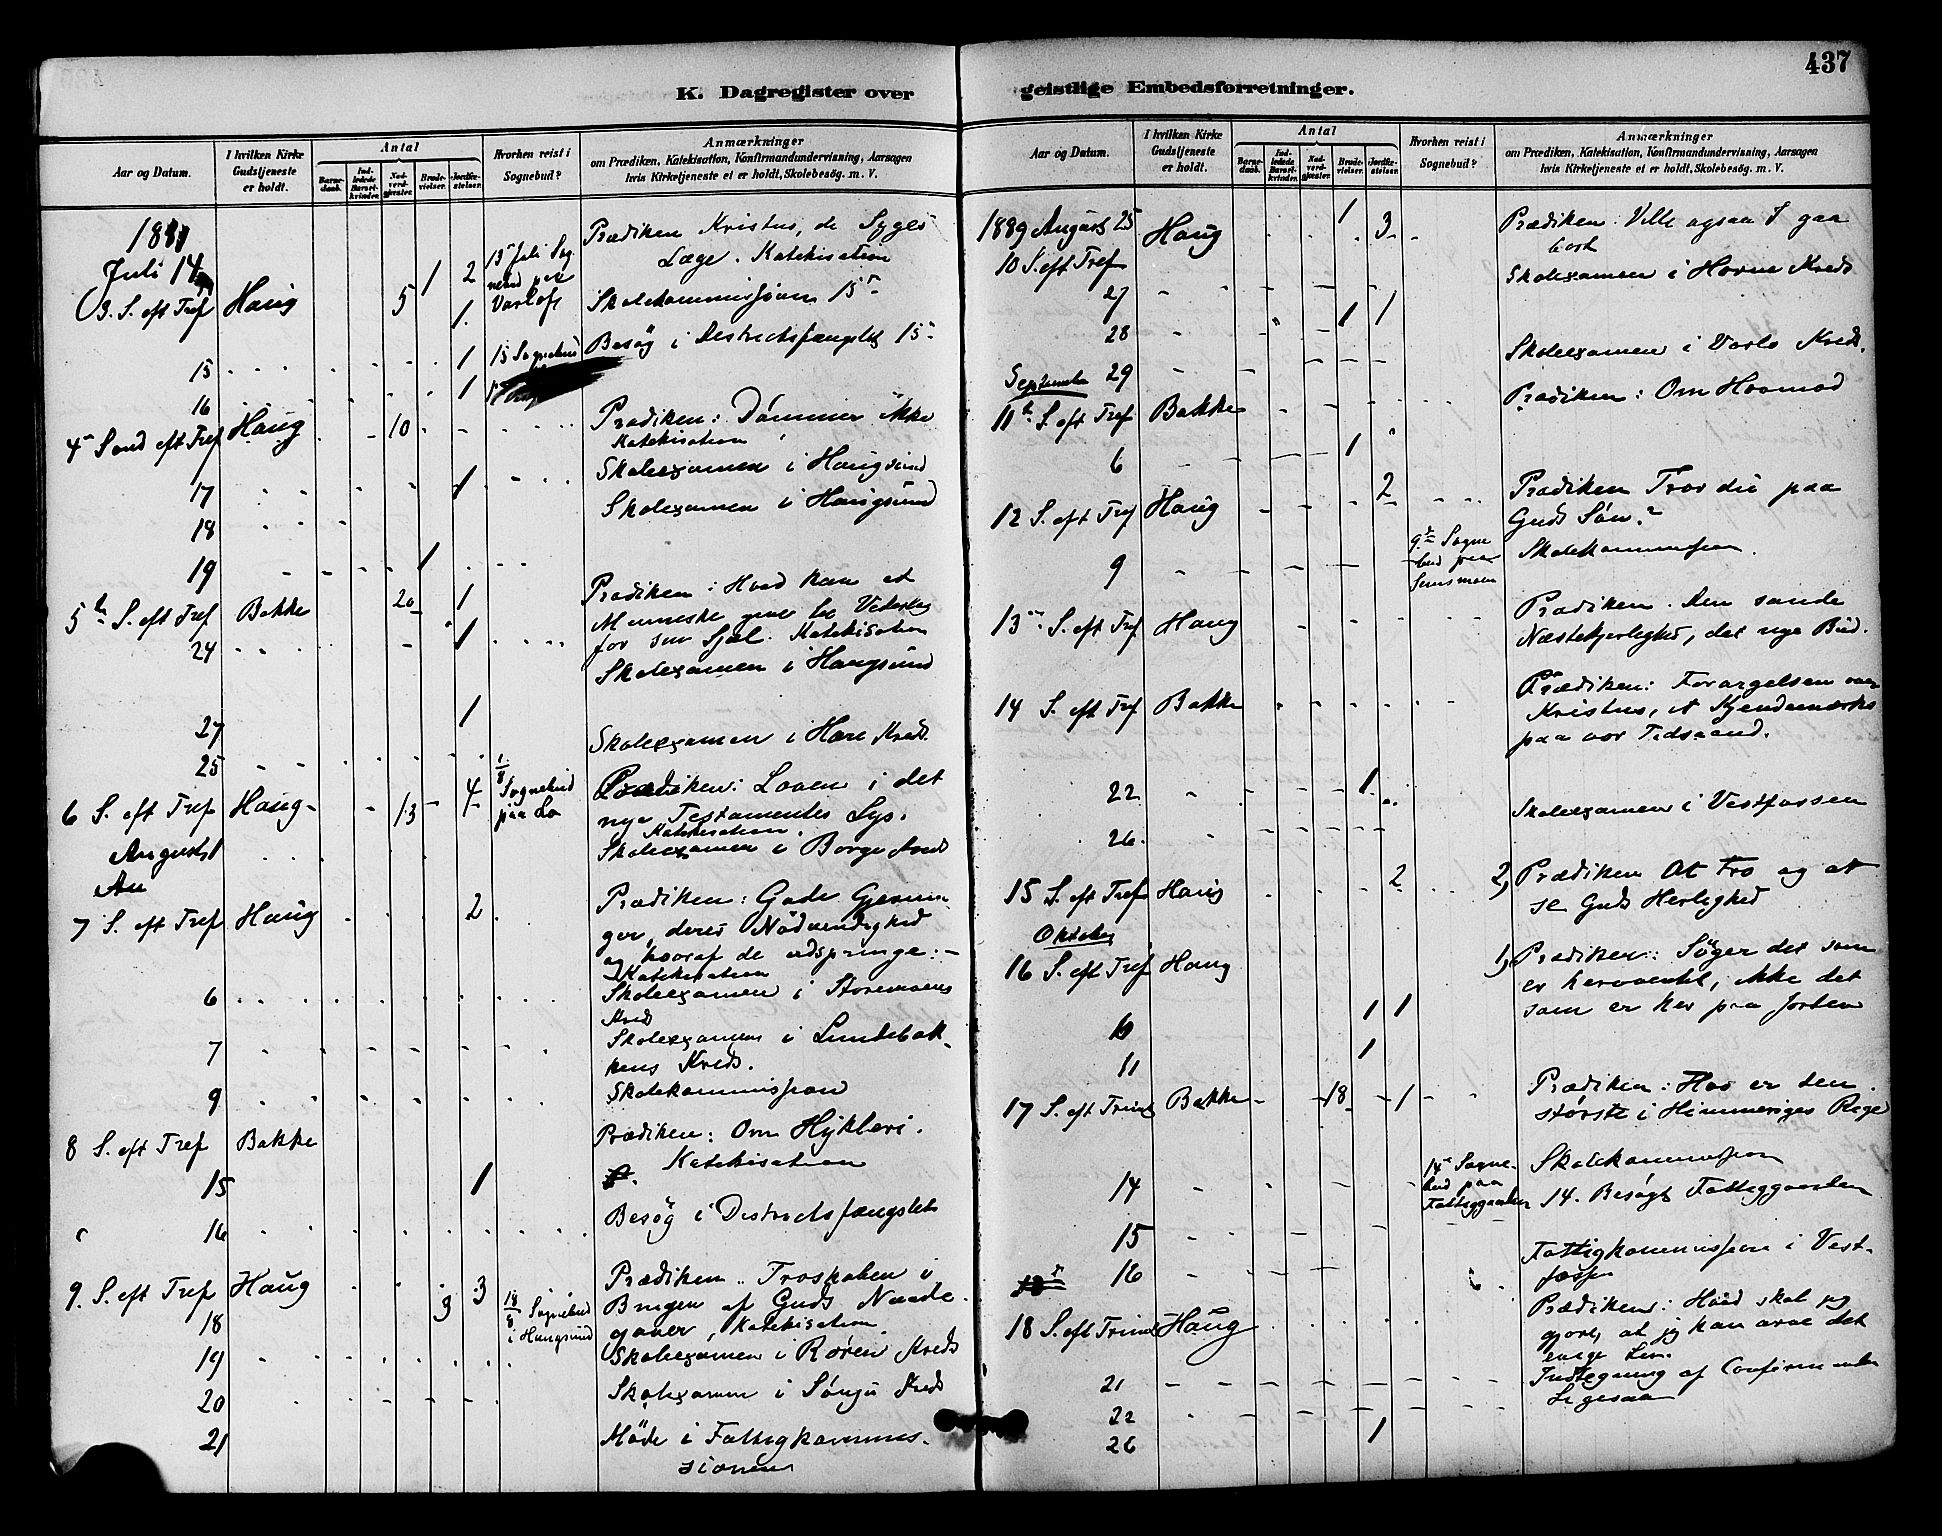 437
K. Dagregister over geistlige Embedsforretninger.
Aar og Datum.
I hvilken Kirke Gudstjeneste er holdt.
Antal
Barnedaab.
Indledede Barselkvinder.
Nadverdgjæster.
Brudevielser.
Jordfæstelser.
Hvorhen reist i Sognebud?
Anmærkninger
om Prædiken, Katekisation, Konfirmandundervisning, Aarsagen
hvis Kirketjeneste ei er holdt, Skolebesøg. m. V.
Juli 14
Prædiken Kristus, de Syges
Læge. Katekisation
3. S. eft Tref Haug 5 1 2
Skolekommissionen 15
15 1
Besøg i Distriktsfængslet 15
16 1
4 Sønd eft Tref Haug 10
Prædiken: Dømmer ikke
Katekisation
17 1
Skoleexamen i Haugsund
18
Skoleexamen i Haugsund
19 1
5te S. eft Tref Bakke 20 1
Prædiken: Hvad kan et
Menneske give til Vederlag
for sin Sjæl. Katekisation
24 1
Skoleexamen i Haugsund
27 1
25
Skoleexamen i Hære Kreds
6 S. eft Tref Haug 13 4
1/8 Sognebud paa Lo
Prædiken: Loven i det
nye Testamentes Lys.
Katekisation.
August 1
Skoleexamen i Borge Kreds
7 S. eft Tref Haug 2
Prædiken: Gode Gjerninger, deres Nödvendighed
og hvoraf de udspringe:
Katekisation
6
Skoleexamen i Storemoens
Kreds
7
Skoleexamen i Lundebakkens Kreds.
9
Skolekommission
8 S. eft Tref Bakke
Prædiken: Om Hykleri.
Katekisation
15 1
16
Besøg i Distriktsfængslet
9. S. eft Tref Haug 3 3
18/8 Sognebud i Haugsund
Prædiken: Troskaben i
Brugen af Guds Naade
gaver, Katekisation
18
19
Skoleexamen i Røren Kreds
20
Skolexamen i Sönju Kreds
21
Møde i Fattigkommissionen
Aar og Datum.
I hvilken Kirke Gudstjeneste er holdt.
Antal
Barnedaab.
Indledede Barselkvinder.
Nadverdgjæster.
Brudevielser.
Jordfæstelser.
Hvorhen reist i Sognebud?
Anmærkninger
om Prædiken, Katekisation, Konfirmandundervisning, Aarsagen
hvis Kirketjeneste ei er holdt, Skolebesøg. m. V.
1889 August 25 Haug 1 3
10 S. eft Tref
Prædiken: Ville ogsaa I gaa
bort
27
Skoleexamen i Hovne Kreds
28 1 1
29
Skoleexamen i Varlo Kreds.
September
11te S. eft Tref Bakke
Prædiken: Om Hovmod
6 1
12 S. eft Tref Haug 2
Prædiken Tror du paa
Guds Søn?
9
Skolekommission.
13 S. eft Tref Haug
Prædiken. Den sande
Næstekjerlighed, det nye Bud.
14 S. eft Tref Bakke
Prædiken: Forargelsen over
Kristus, et Kjendemærke
paa vor Tidsaand.
22 1
26
Skoleexamen i Vestfossen
15 S. eft Tref Haug 2
2, Prædiken At tro og at
se Guds Herlighed
Oktober
16 S. eft Tref Haug
1, Prædiken: Søger det som
er heroventil, ikke det
som er her paa Jorden
10 1 1
11 1
17 S. eft Trinit Bakke 18 1
Prædiken: Hvo er den
störste i Himmeriges Rige
14
14 Sognebud paa Fattiggaarden
Skolekommission
14. Besøgt Fattiggaarden
15
16
Fattigkommission i Vestfossen
18 S. eft Trinit Haug
Prædiken: Hvad skal jeg
gjøre, at jeg kan arve det
evige Liv.
21
Indtegning af Confirmander
22
Ligesaa
26 1